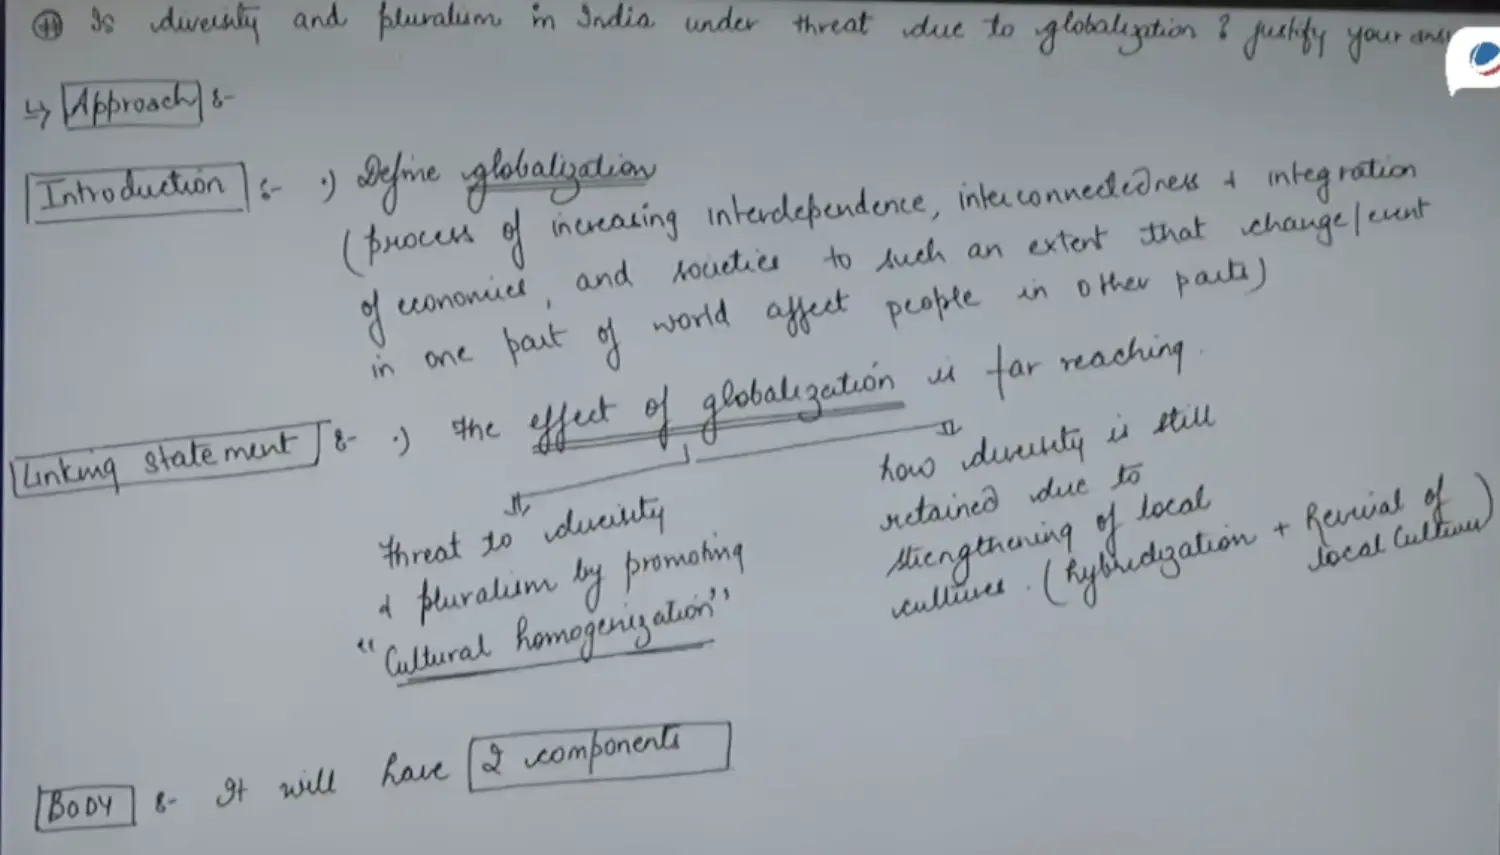 Is diversity and pluralism in India under threat due to globalization? Justify your
↳ Approach :-
Introduction :- •) Define globalization
(process of increasing interdependence, interconnectedness & integration
of economies, and societies to such an extent that change/event
in one part of world affect people in other parts)
Linking statement :- •) The effect of globalization is far reaching.
threat to diversity
& pluralism by promoting
"Cultural homogenization"
how diversity is still
retained due to
strengthening of local
cultures. (hybridization + Revival of
local Culture)
BODY :- It will have 2 components